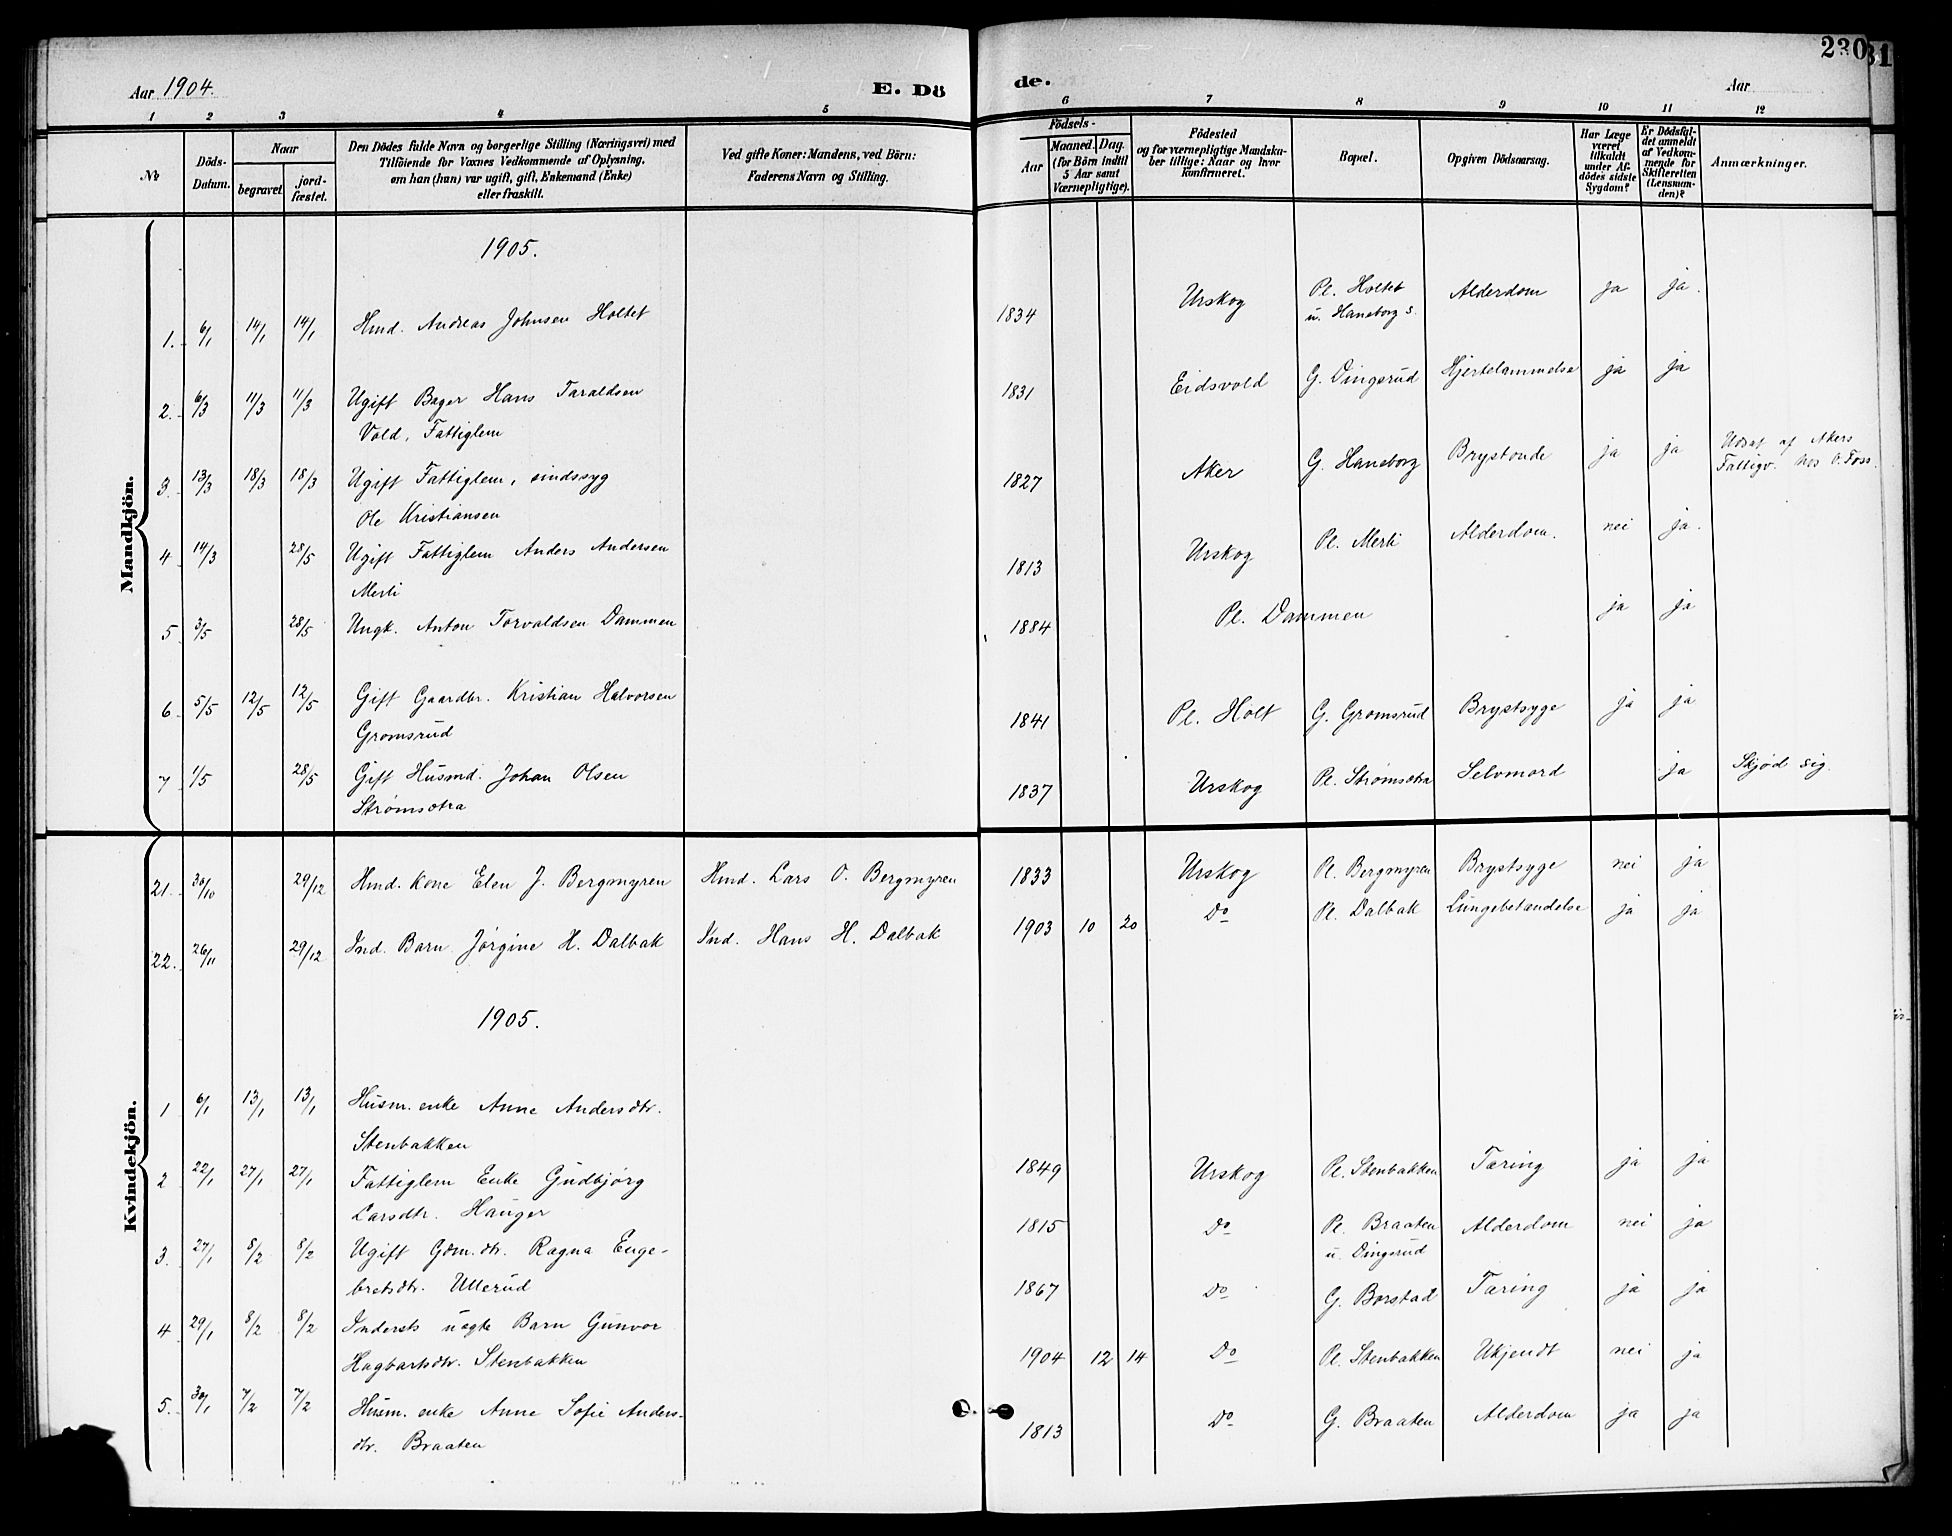 230
31
Aar 1904.
E. Dö
de.
Aar
1 2 3 4 5 6 7 8 9 10 11 12
№
Döds-
Datum.
Naar
begravet
jord-
fæstet.
Den Dödes fulde Navn og borgerlige Stilling (Næringsvei) med
Tilföiende for Voxnes Vedkommende af Oplysning,
om han (hun) var ugift, gift, Enkemand (Enke)
eller fraskilt.
Ved gifte Koner: Mandens, ved Börn:
Faderens Navn og Stilling.
Födsels-
Aar
Maaned. Dag.
(for Börn indtil
5 Aar samt
Værnepligtige).
Födested
og for værnepligtige Mandska-
ber tillige: Naar og hvor
konfirmeret.
Bopæl.
Opgiven Dödsaarsag.
Har Læge
været
tilkaldt
under Af-
dödes sidste
Sygdom?
Er Dödsfal-
det anmeldt
af Vedkom-
mende for
Skifteretten
(Lensman-
den)?
Anmærkninger.
Mandkjön.
1905.
1. 6/1 14/1 14/1 Hmd. Andreas Johnsen Holtet 1834 Urskog Pl. Holtet
u. Haneborg s. Alderdom ja ja.
2. 6/3 11/3 11/3 Ugift Bager Hans Taraldsen
Vold, Fattiglem 1831 Eidsvold G. Dingsrud Hjertelammelse ja ja
3. 13/3 18/3 18/3 Ugift Fattiglem, sindssyg
Ole Kristiansen 1827 Aker G. Haneborg Brystonde ja ja Udsat af Akers
Fattigv. hos O. Foss.
4 14/3 28/5 Ugift Fattiglem Anders Andersen
Merli 1813 Urskog Pl. Merli Alderdom. nei ja.
5 3/5 28/5 Ungk. Anton Torvaldsen Dammen 1884 Pl. Dammen ja ja
6 5/5 12/5 12/5 Gift Gaardbr. Kristian Halvorsen
Gromsrud 1841 Pl. Holt G. Gromsrud Brystsyge ja ja
7 1/5 28/5 Gift Husmd. Johan Olsen
Strømsætra 1837 Urskog Pl. Strømsætra Selvmord ja Skjød sig.
Kvindekjön.
21. 30/10 29/12 Hmd. Kone Elen J. Bergmyren Hmd. Lars O. Bergmyren 1833 Urskog Pl. Bergmyren Brystsyge nei ja
22. 26/11 29/12 Ind. Barn Jørgine H. Dalbak Ind. Hans H. Dalbak 1903 10 20 Do Pl. Dalbak Lungebetændelse ja ja
1905.
1 6/1 13/1 13/1 Husm. enke Anne Andersdtr.
Stenbakken 1849 Urskog Pl. Stenbakken Tæring ja ja
2 22/1 27/1 27/1 Fattiglem Enke Gudbjørg
Larsdtr. Hauger 1815 Do Pl. Braaten
u. Dingsrud Alderdom nei ja
3. 27/1 8/2 8/2 Ugift Gdm. dtr. Ragna Enge-
bretsdtr. Ullerud 1867 Do G. Borstad Tæring ja ja
4 29/1 8/2 8/2 Indersts uægte Barn Gunvor
Hagbartsdtr. Stenbakken 1904 12 14 Do Pl. Stenbakken Ukjendt nei ja
5. 30/1 7/2 7/2 Husm. enke Anne Sofie Anders-
dtr. Braaten 1813 Do G. Braaten Alderdom ja ja